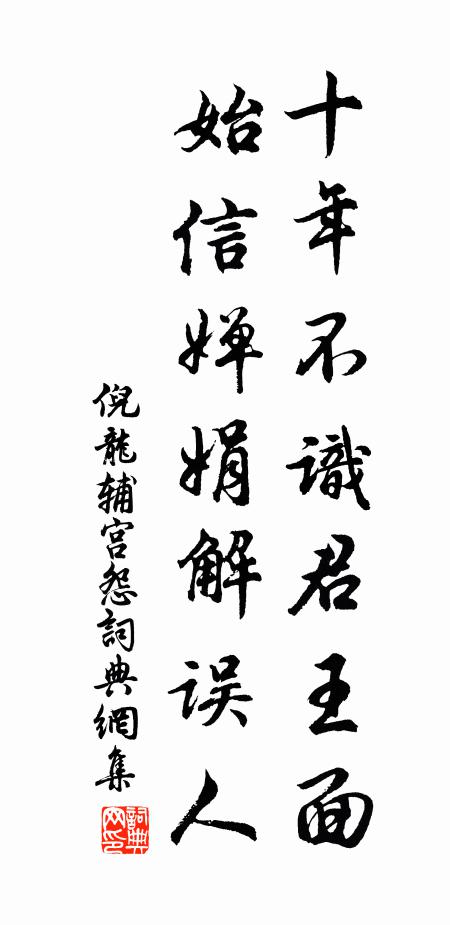 十年不識君王面
始信嬋娟解误人
倪龍辅宫怨詞典網集
詞典网印